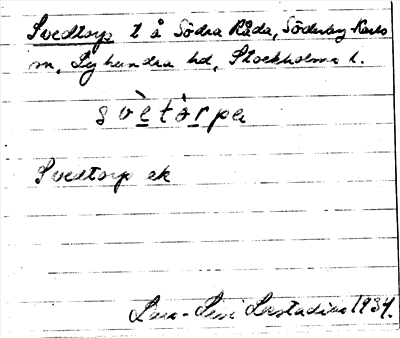 Svedtorp t å Södra Råda, Söderby Karls
m, Lyhundra hd, Stockholms l.
svètårpa
Svedtorp ek
Lars-Levi Læstadius 1934.